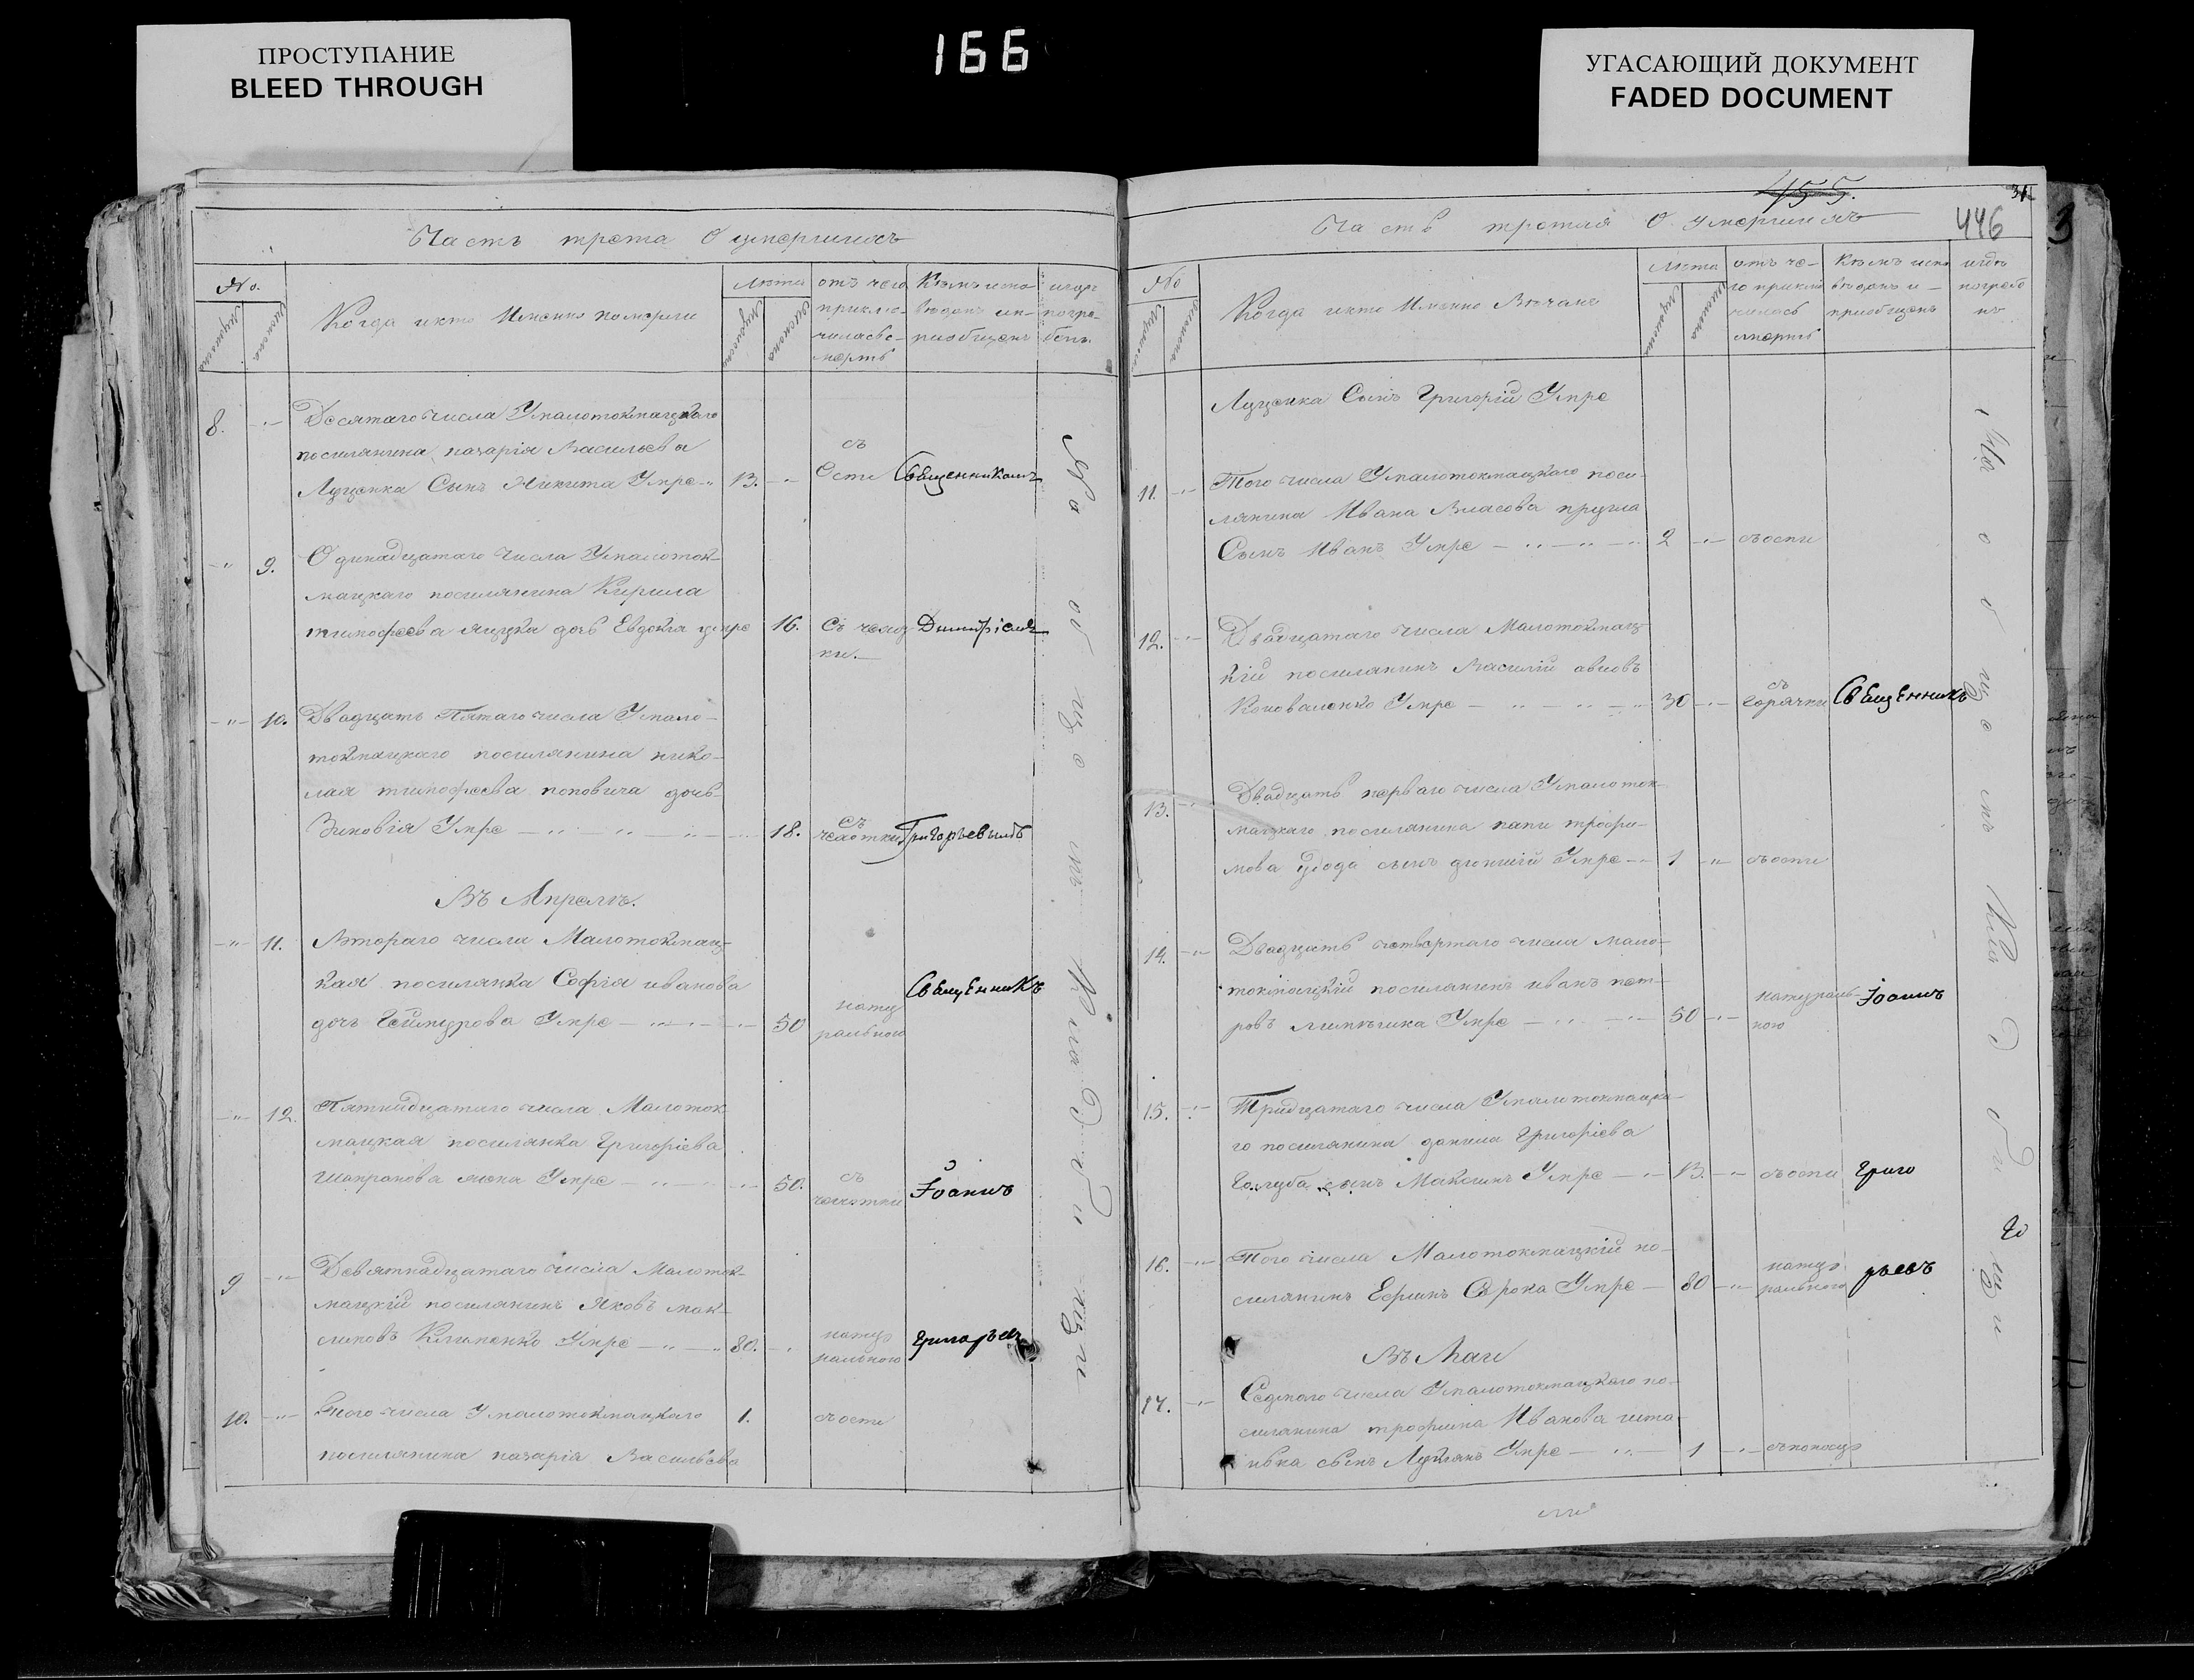 ПРОСТУПАНИЕ
BLEED THROUGH
166
УГАСАЮЩИЙ ДОКУМЕНТ
FADED DOCUMENT
Часть трета О умершихъ
No.
Когда икто Именно померли
Лета
отъ чего приклю-чиласьс-мерть
Кемъ испо-веданъ ип-риобщенъ
игдe погре-бенъ
8. Десятаго числа Умалотокмацкаго
поселянина назарія Васильева
Луценка Сынъ Никита Умре 13. съ Оспи Священникомъ
9. Одинадцатаго числа Умалоток-
мацкаго поселянина Кирила
тимофеева яцука дочь Евдокія умре 16. Съ чехот-ки. Димитріемъ
10. Двадцать Пятаго числа Умало-
токмацкаго поселянина нико-
лая тимофеева поповича дочь
Зиновія Умре 18. съ чехотки Григорьевымъ
Въ Апреле.
11. Втораго числа Малотокмац-
кая поселянка Софія иванова
дочь Умре 50 нату ральною Священникъ
12. Пятнадцатаго числа Малоток
мацкая поселянка Григоріева
Шапранова жена Умре 50. съ чехотки Іоаннъ
9 Девятнадцатаго числа Малоток-
мацкій поселянинъ Яковъ мак-
симовъ Клименко Умре 80. нату ральною Григорьев
10. Того числа Умалотокмацкаго 1. съоспи
поселянина назарія Васильева
На общемъ Кладбищи
455.
31
446
3
Часть третая О умершихъ
No
Когда икто Именно Венчанъ
Лета
отъ че-го приклю чилась смерть
Кемъ испо веданъ и - приобщенъ
игде погребе нъ
Луценка Сынъ Григорій Умре
11. Того числа Умалотокмацкаго посе-
лянина Ивана Власова
Сынъ Иванъ Умре 2 съоспи
12. Двадцатаго числа Малотокмац-
кій поселянинъ Василій
Коноваленко Умре 30 съ горячки Священникъ
13. Двадцать перваго числа Умалоток
мацкаго поселянина трофи-
мова Удода сынъ Умре 1 съоспи
14. Двадцать четвертаго числа мало-
токмацкій поселянинъ иванъ пет-
ровъ Умре 50 натураль-ною Іоаннъ
15. Тридцатаго числа Умалотокмацка-
го поселянина данила Григоріева
Голуба сынъ Максимъ Умре 13. съоспи Григо
16. Того числа Малотокмацкій по-
селянинъ Ефимъ Сорока Умре 80 нату ральною рьевъ
Въ Маи
17. Седмого числа Умалотокмацкаго по-
селянина трофима Иванова
сынъ Лукіянъ Умре 1 съпоносу
На общемъ Кладбищи